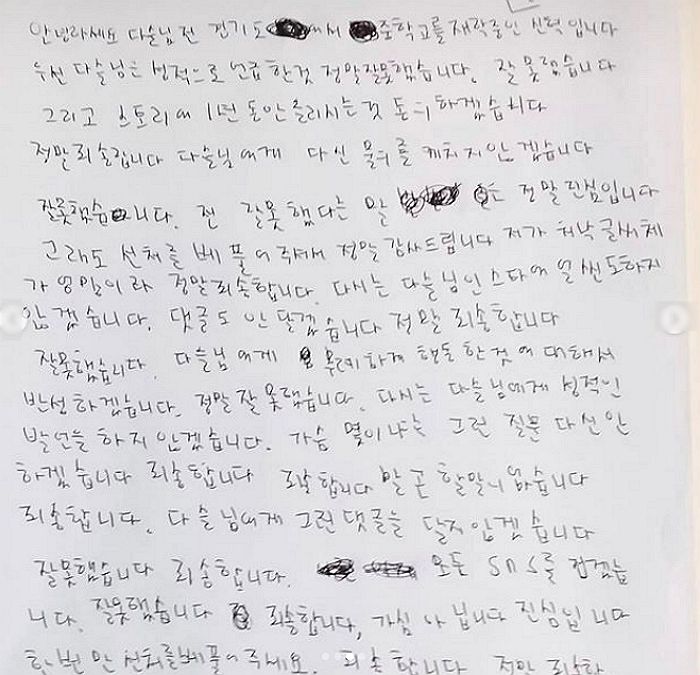 안녕하세요 다슬님 전 경기도 에서 중학교를 재학중인 신력입니다
우선 다슬님은 성적으로 언급한것 정말잘못했습니다. 잘못했습니다
그리고 스토리에 1년동안 올리시는것 동의하겠습니다
정말죄송합니다 다슬님에게 다신 물의를 끼치지않겠습니다
잘못했습니다. 전 잘못했다는 말 은 정말진심입니다
그래도 선처를 베풀어주셔서 정말감사드립니다 저가 처낙글씨체
가 엉망이라 정말죄송합니다. 다시는 다슬님인스타에 얼씬도하지
않겠습니다. 댓글도 안달겠습니다 정말 죄송합니다
잘못했습니다. 다슬님에게 무례하게 행동한것에대해서
반성하겠습니다. 정말잘못했습니다. 다시는 다슬님에게 성적인
발언을 하지 않겠습니다. 가슴 몇이냐는 그런 질문 다신안
하겠습니다 죄송합니다 죄송합니다 말곤 할말이 없습니다
죄송합니다. 다슬님에게 그런댓글을 달지않겠습니다
잘못했습니다 죄송합니다. 모든 SNS를 접겠습
니다. 잘못했습니다 죄송합니다, 가심사닙니다 진심입니다
한번만선처를베풀어주세요. 죄송합니다 정말 죄송합